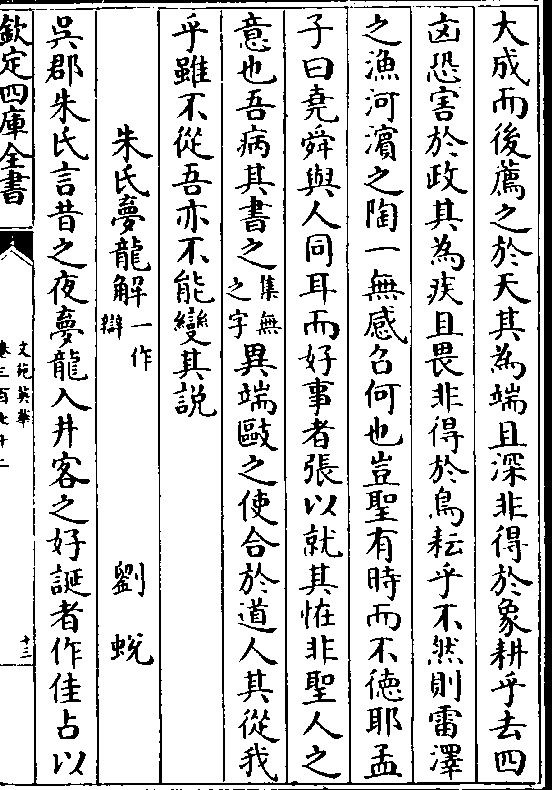 大成而後薦之於天其為端且深非得於象耕乎去四
凶恐害於政其為疾且畏非得於鳥耘乎不然則雷澤
之漁河濱之陶一無感召何也豈聖有時而不德耶孟
子曰堯舜與人同耳而好事者張以就其怪非聖人之
意也吾病其書之集無之字異端敺之使合於道人其從我
乎雖不從吾亦不能變其説
朱氏夢龍解一作辯 劉蛻
吳郡朱氏言昔之夜夢龍入井客之好誕者作佳占以
欽定四庫全書
文苑英華
卷三百七十二
十三